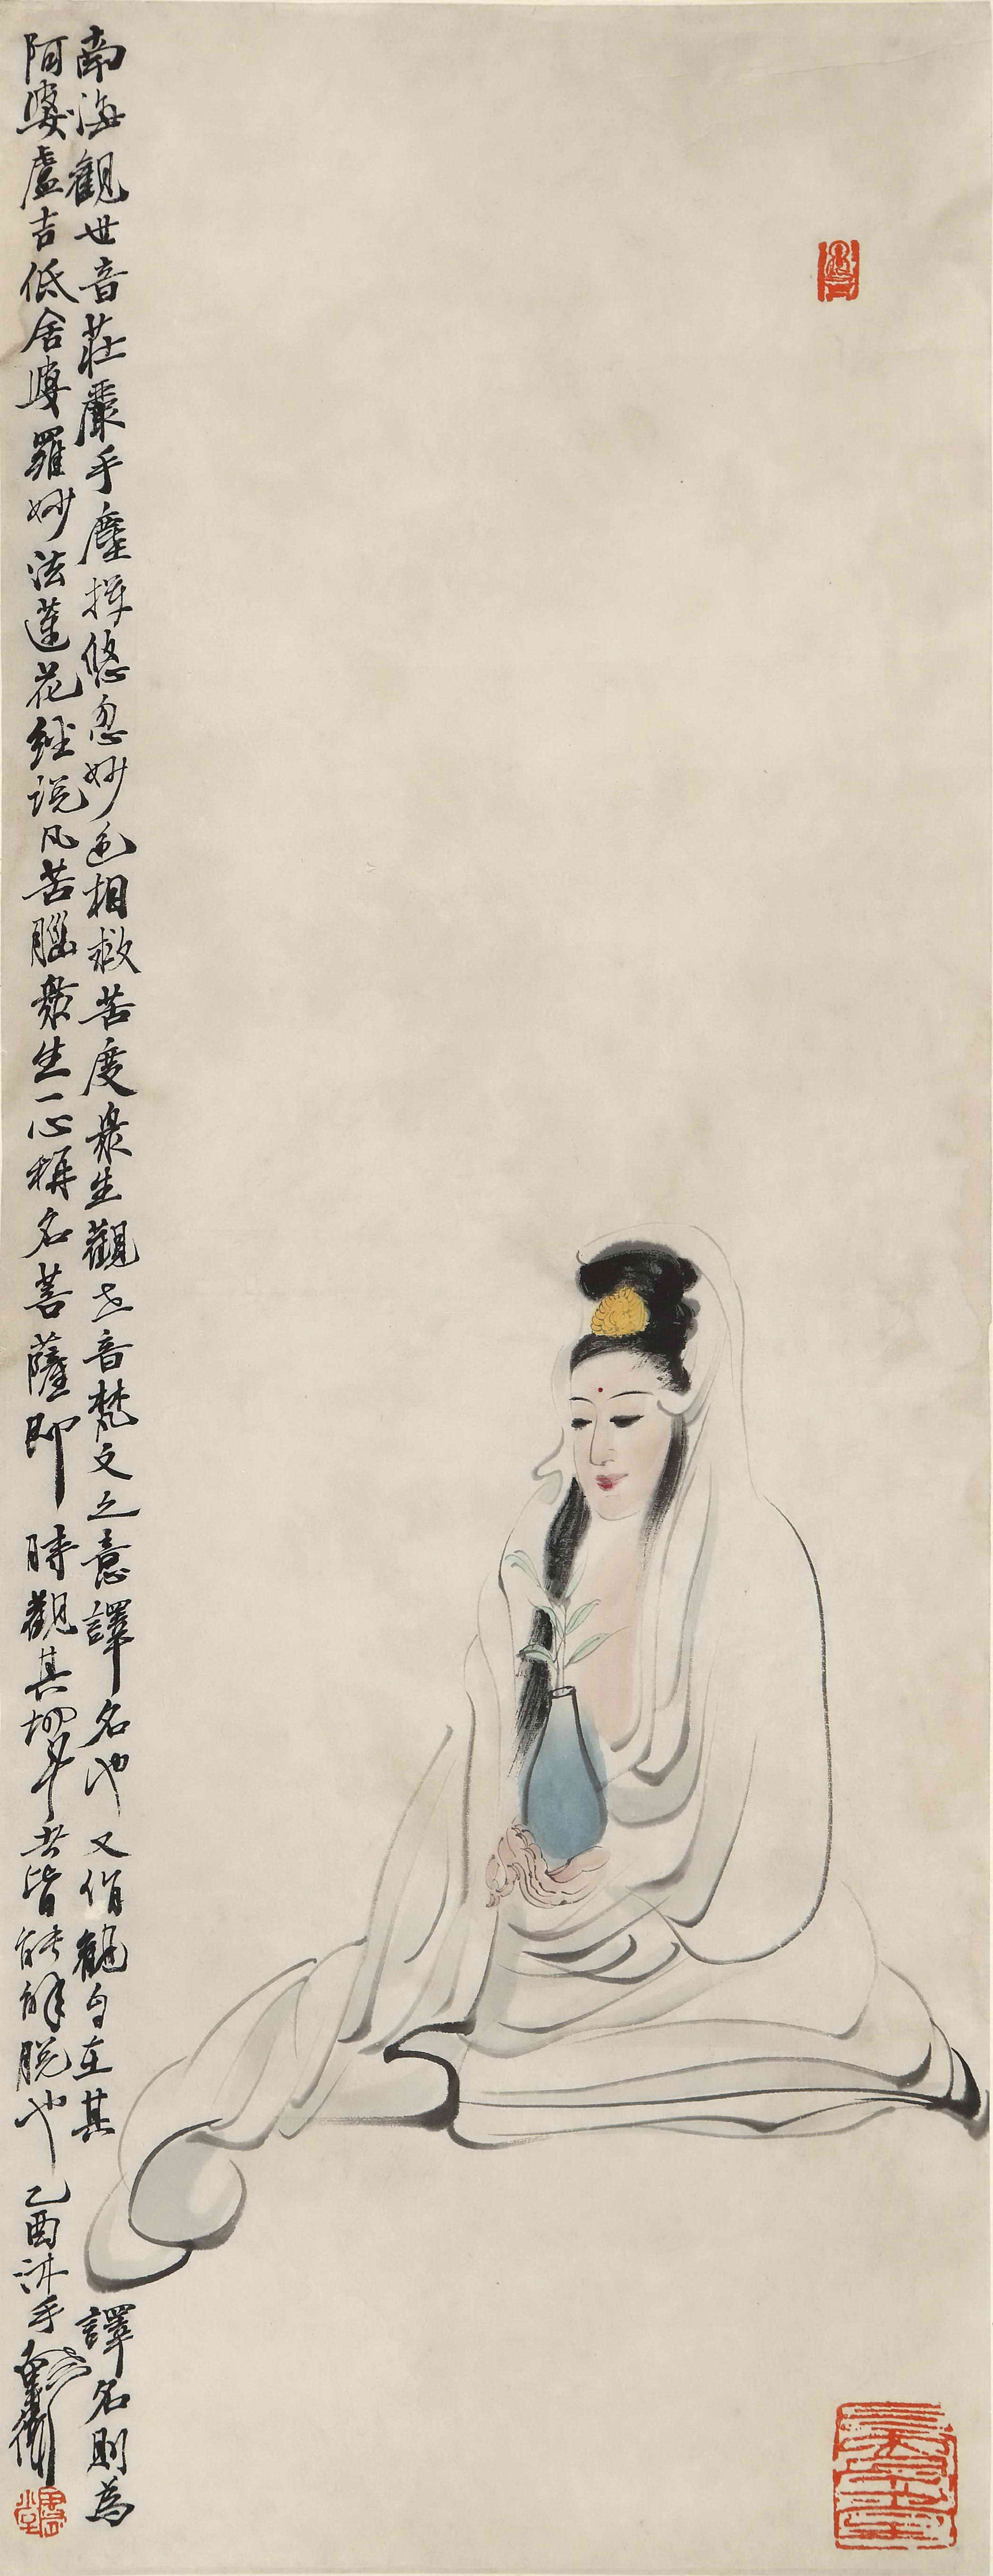 南海觀世音莊嚴手塵揮悠忽妙色相救苦度眾生觀世音梵文之意譯名也又俏觀自在其譯名則為
阿婆盧吉低舍婆羅妙法蓮花經說凡苦腦眾生一心稱名菩薩即時觀其切身去皆能解脫也乙酉沐手